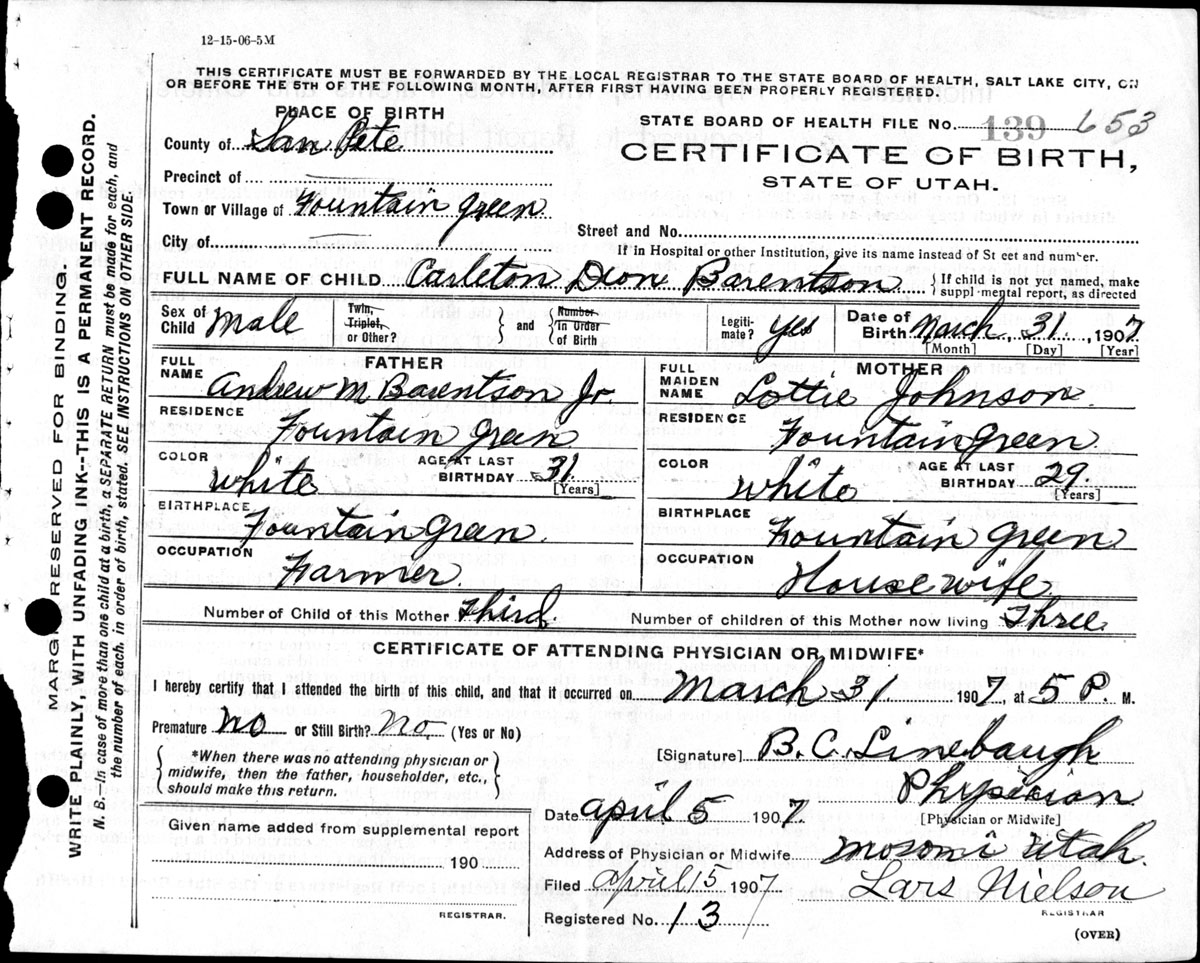 12-15-06-5M
THIS CERTIFICATE MUST BE FORWARDED BY THE LOCAL REGISTRAR TO THE STATE BOARD OF HEALTH, SALT LAKE CITY, ON
OR BEFORE THE 5TH OF THE FOLLOWING MONTH, AFTER FIRST HAVING BEEN PROPERLY REGISTERED.
PLACE OF BIRTH
STATE BOARD OF HEALTH FILE No. 139 653
County of San Pete
CERTIFICATE OF BIRTH,
STATE OF UTAH.
Precinct of
Town or Village of Fountain Green
Street and No.
City of
If in Hospital or other Institution, give its name instead of St eet and number.
FULL NAME OF CHILD Carleton Dion Barentson { If child is not yet named, make
suppl mental report, as directed
Sex of Child Male
Twin, Triplet, or Other? } and { Number in Order of Birth
Legiti-mate? yes
Date of Birth March 31, 1907
[Month] [Day] [Year]
FATHER
FULL NAME Andrew M Barentson Jr
RESIDENCE Fountain Green
COLOR white AGE AT LAST BIRTHDAY 31
[Years]
BIRTHPLACE Fountain Green.
OCCUPATION Farmer.
MOTHER
FULL MAIDEN NAME Lottie Johnson.
RESIDENCE Fountain Green.
COLOR white AGE AT LAST BIRTHDAY 29.
[Years]
BIRTHPLACE Fountain Green
OCCUPATION House wife
Number of Child of this Mother Third. Number of children of this Mother now living Three.
CERTIFICATE OF ATTENDING PHYSICIAN OR MIDWIFE*
I hereby certify that I attended the birth of this child, and that it occurred on March 31 1907, at 5 P. M.
Premature no or Still Birth? no. (Yes or No)
[Signature] B. C. Linebaugh
{ *When there was no attending physician or
midwife, then the father, householder, etc.,
should make this return. }
Physician
[Physician or Midwife]
Date April 5 1907.
Given name added from supplemental report
190
REGISTRAR.
Address of Physician or Midwife Utah.
Filed April 15 1907 Lars Nielson
REGISTRAR
Registered No. 13
(OVER)
MARG RESERVED FOR BINDING.
WRITE PLAINLY, WITH UNFADING INK--THIS IS A PERMANENT RECORD.
N. B.--In case of more than one child at a birth, a SEPARATE RETURN must be made for each, and
the number of each, in order of birth, stated. SEE INSTRUCTIONS ON OTHER SIDE.